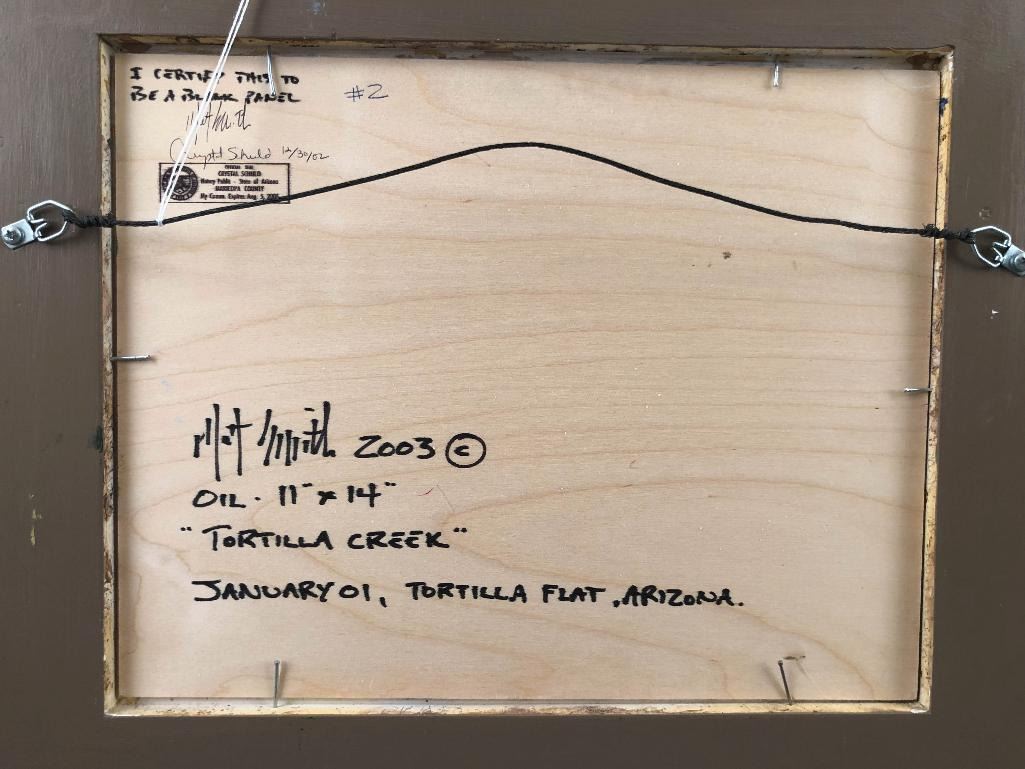 I CERTIFY THIS TO
BE A BLANK PANEL
#2
Mat Smith
Crystal Schuld 12/30/02
OFFICIAL SEAL
CRYSTAL SCHULD
Notary Public - State of Arizona
MARICOPA COUNTY
My Comm. Expires Aug. 5,
Mat Smith 2003 ©
OIL. 11" x 14"
"TORTILLA CREEK"
JANUARY 01, TORTILLA FLAT, ARIZONA.